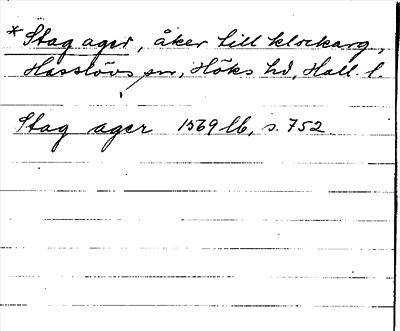 *Stag ager, åker till klockarg.,
Hasslövs sn, Höks hd, Hall. l.
Stag ager 1569 lb, s. 752.